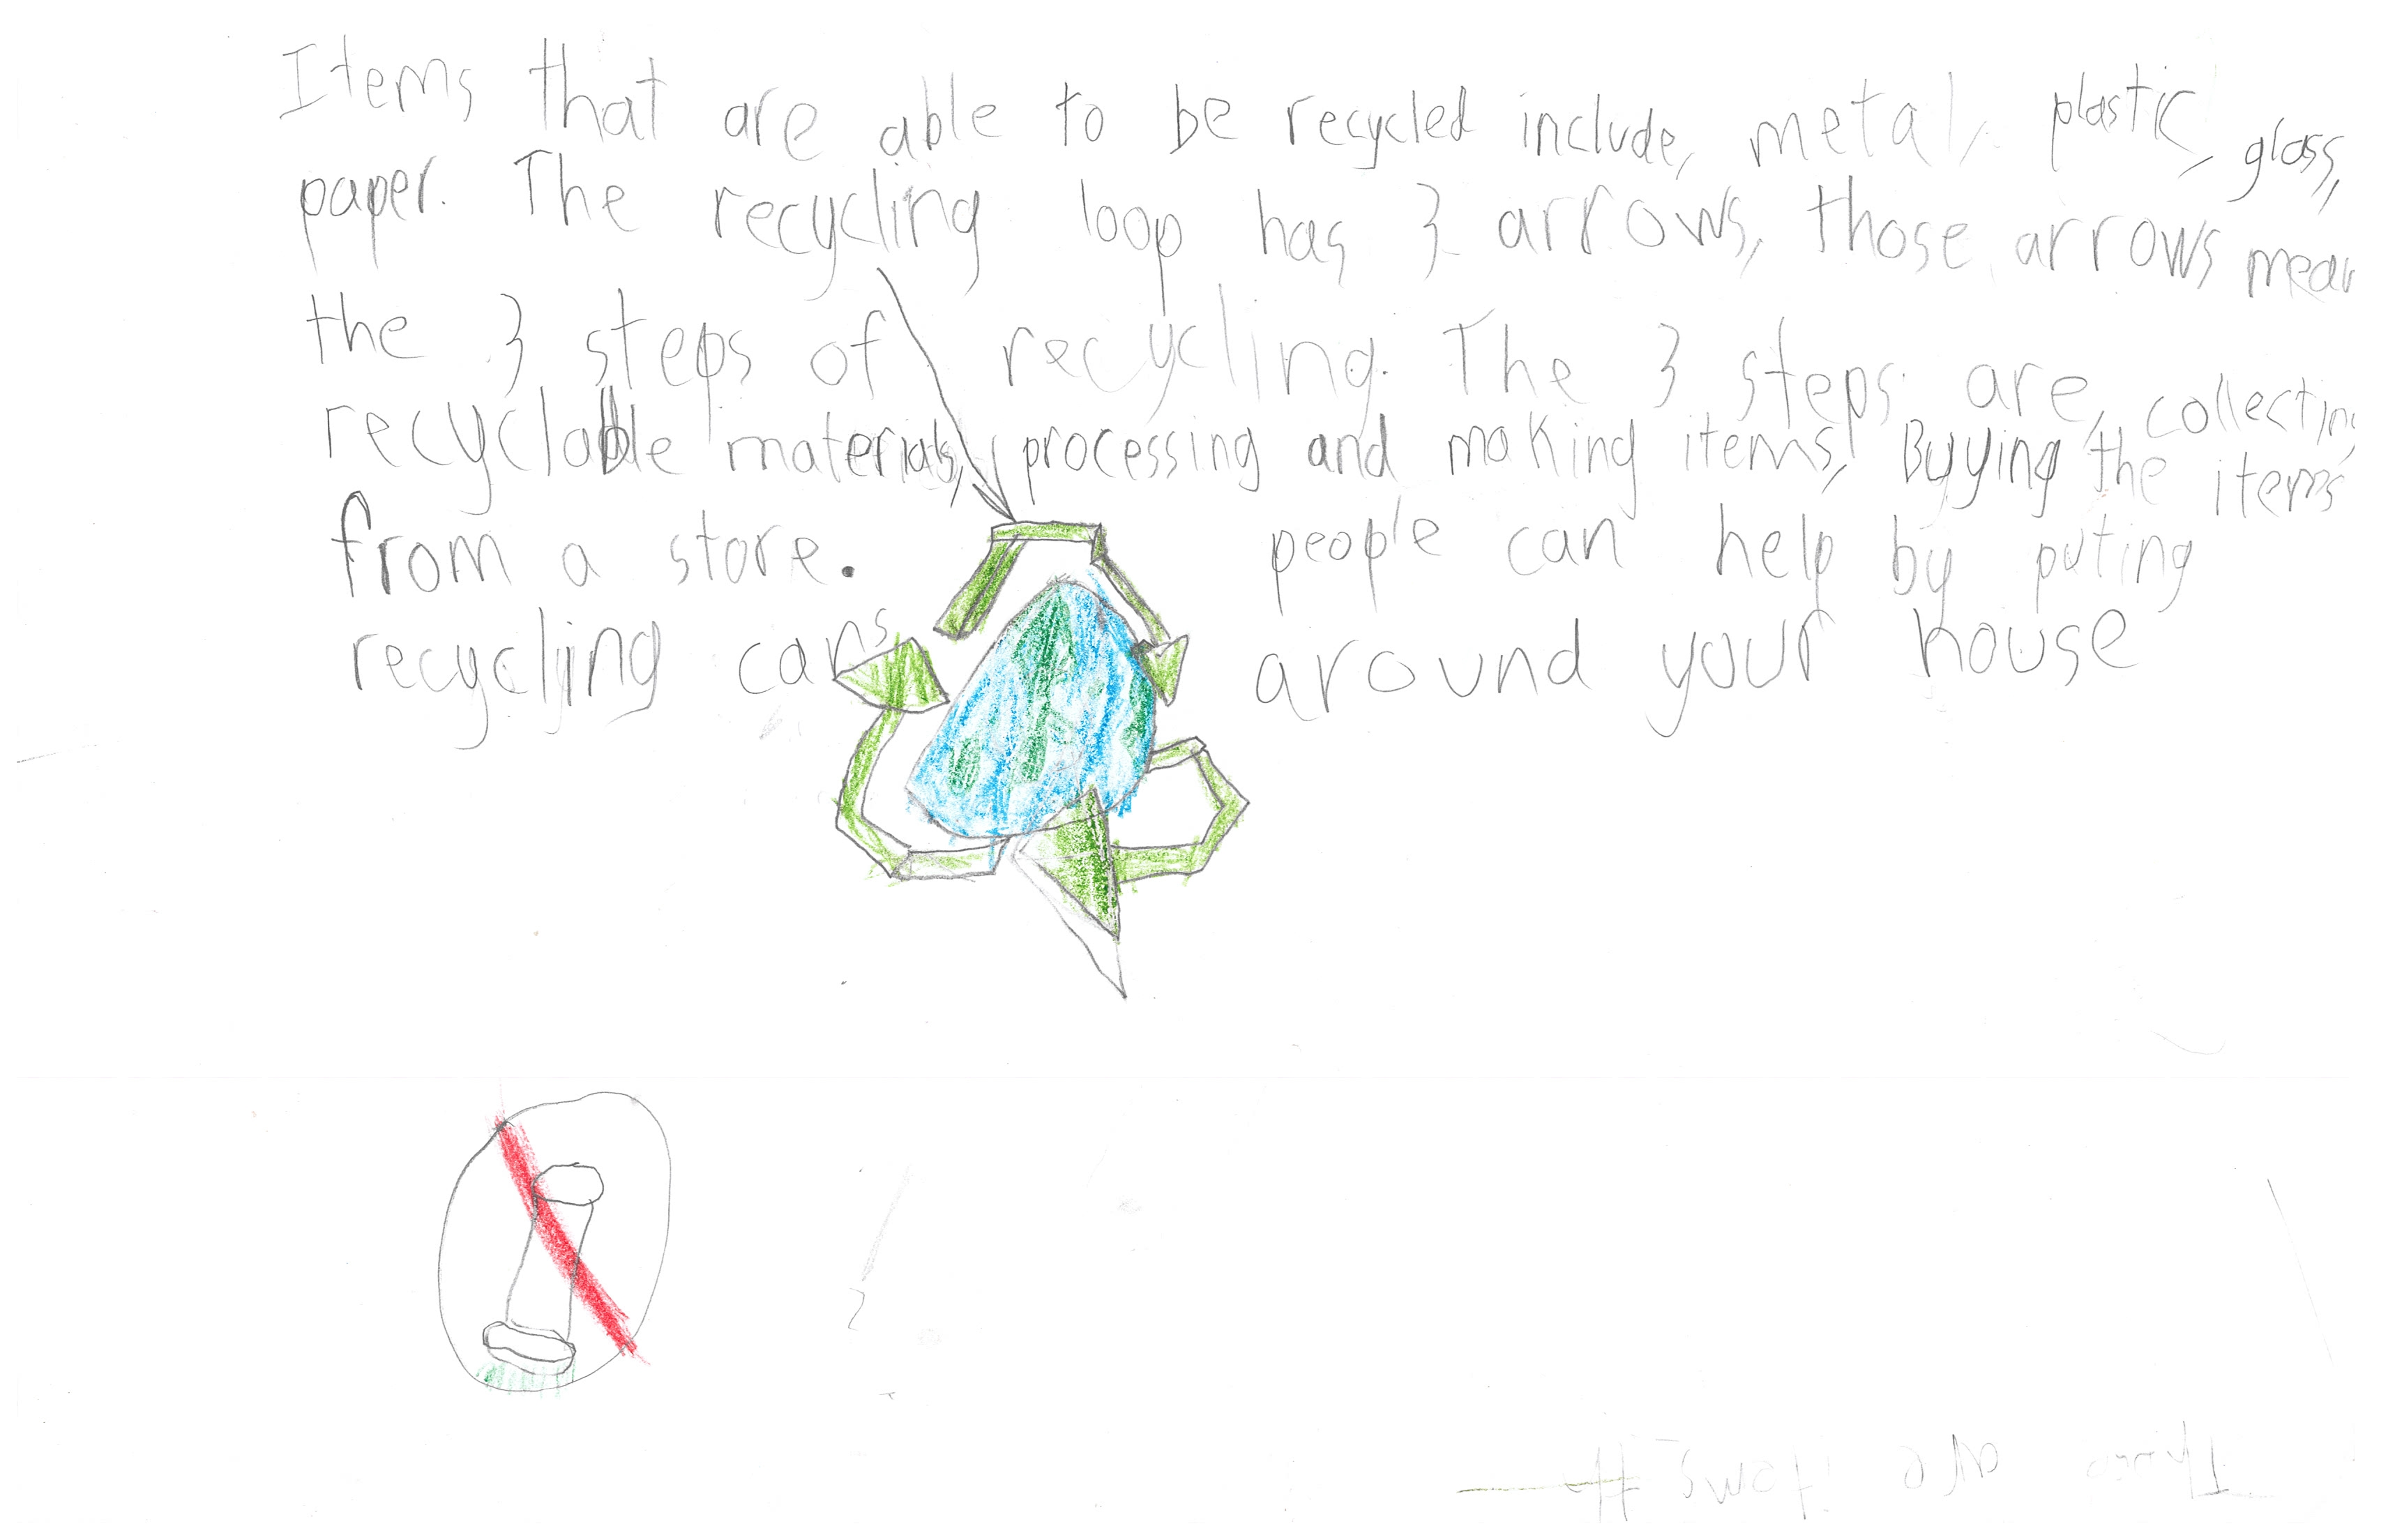 Items that are able to be recycled include, metal, plastic, glass,
paper. The recycling loop has 3 arrows, those arrows mean
the 3 steps of recycling. The 3 steps are, collecting
recyclable materials, processing and making items, Buying the items
from a store. people can help by puting
recycling cans around your house